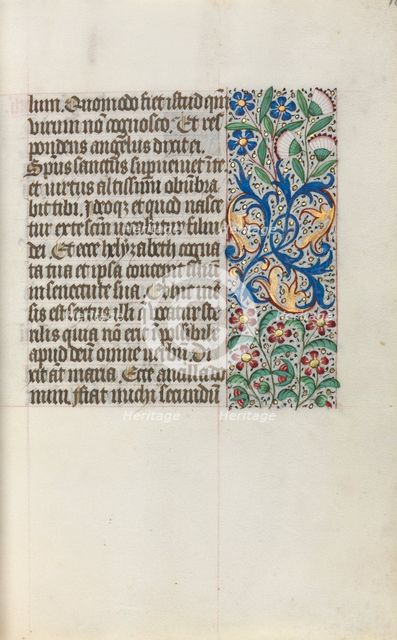 lum. Quomodo fiet istud qm̄
virum nō cognosco. Et res
pondens angelus dixit ei.
Sp̄us sanctus supueniet ī te
et virtus altissimi obūbra
bit tibi. Jdeoqz et quod nasce
tur ex te sctm̄ vocabitur filius
dei. Et ecce helyzabeth cogna
ta tua et ipsa concepit filiū
in senectute sua. Et hic mē
sis est sextus illi q̄ vocatur ste
rilis quia nō erit īpossibile
apud deū omne verbū. Di
xit aūt maria. Ecce ancilla do
mini. fiat michi secundū
Heritage
Heritage
Heritage
Heritage